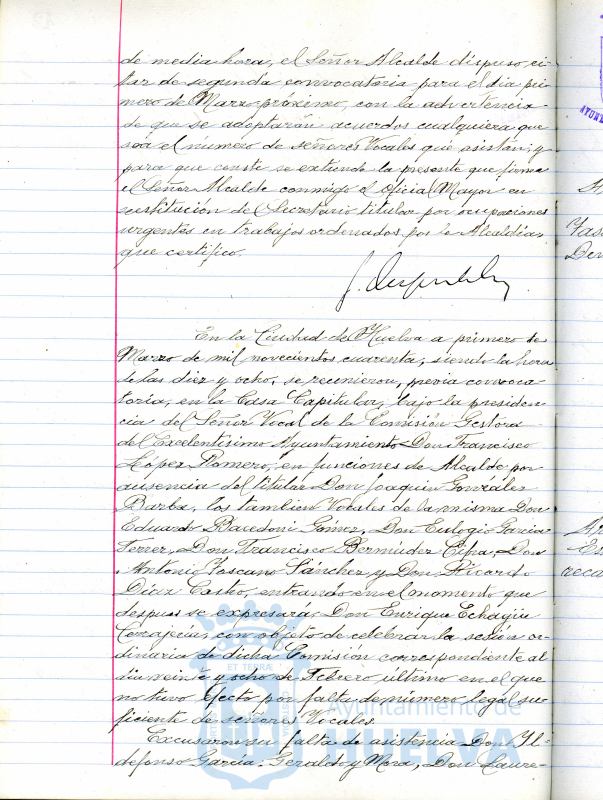 de media hora, el Señor Alcalde dispuso ci-
tar de segunda convocatoria para el dia pri-
mero de Marzo próximo, con la advertencia
de que se adoptarán acuerdos cualquiera que
sea el numero de señores Vocales que asistan; y
para que conste se extiende la presente que firma
el Señor Alcalde conmigo el Oficial Mayor en
sustitución del Secretario titular por ocupaciones
urgentes en trabajos ordenados por la Alcaldía,
que certifico.
En la Ciudad de Huelva a primero de
Marzo de mil novecientos cuarenta, siendo la hora
de las diez y ocho, se reunieron, previa convoca
toria, en la Casa Capitular, bajo la presiden-
cia del Señor Vocal de la Comisión Gestora
del Excelentísimo Ayuntamiento Don Francisco
López Romero, en funciones de Alcalde por
ausencia del titular Don Joaquin González
Barba, los tambien Vocales de la misma Don
Eduardo Bacedoni Gómez, Don Eulogio Garcia
Ferrer, Don Francisco Bermúdez Cipa, Don
Antonio Toscano Sánchez y Don Ricardo
Díaz Castro, entrando en el momento que
despues se expresará Don Enrique Echagüe
con objeto de celebrar la sesión or-
dinaria de dicha Comisión correspondiente al
dia veinte y ocho de Febrero último en el que
no tuvo efecto por falta de número legal su
ficiente de señores Vocales.
Excusaron su falta de asistencia Don Il-
defonso Garcia Geraldo y Mora, Don Laure-
ET TERRÆ
Ayuntamiento de
HUELVA